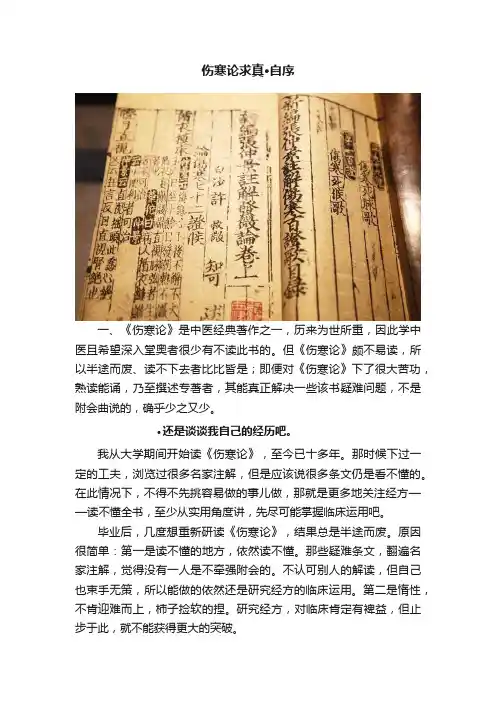 伤寒论求真•自序
新编张仲景註解伤寒百證歌目録
新編張仲景註解發微論卷之一
白沙 許 叔微 知可 述
論傷寒七十二證候
一、《伤寒论》是中医经典著作之一，历来为世所重，因此学中
医且希望深入堂奥者很少有不读此书的。但《伤寒论》颇不易读，所
以半途而废、读不下去者比比皆是；即便对《伤寒论》下了很大苦功，
熟读能诵，乃至撰述专著者，其能真正解决一些该书疑难问题，不是
附会曲说的，确乎少之又少。
•还是谈谈我自己的经历吧。
我从大学期间开始读《伤寒论》，至今已十多年。那时候下过一
定的工夫，浏览过很多名家注解，但是应该说很多条文仍是看不懂的。
在此情况下，不得不先挑容易做的事儿做，那就是更多地关注经方—
—读不懂全书，至少从实用角度讲，先尽可能掌握临床运用吧。
毕业后，几度想重新研读《伤寒论》，结果总是半途而废。原因
很简单：第一是读不懂的地方，依然读不懂。那些疑难条文，翻遍名
家注解，觉得没有一人是不牵强附会的。不认可别人的解读，但自己
也束手无策，所以能做的依然还是研究经方的临床运用。第二是惰性，
不肯迎难而上，柿子捡软的捏。研究经方，对临床肯定有裨益，但止
步于此，就不能获得更大的突破。